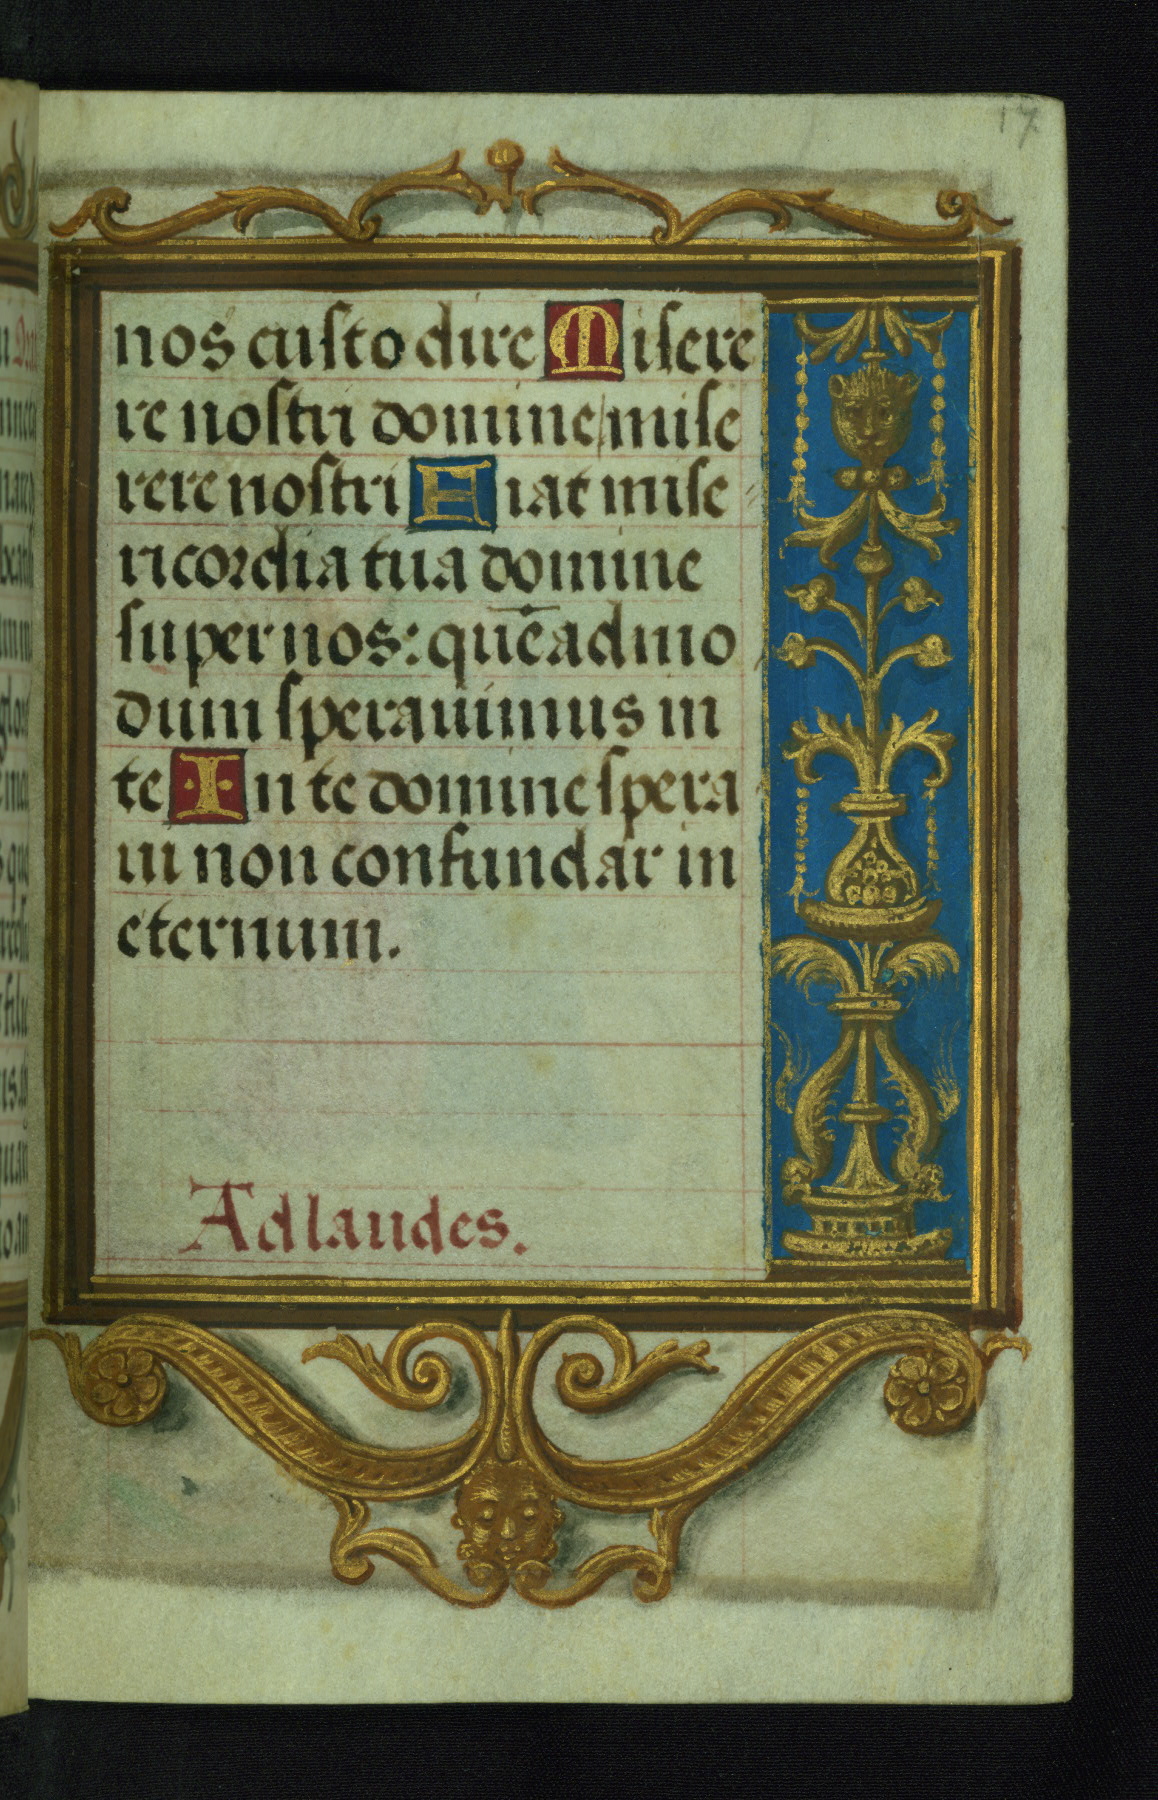 17
nos custodire Misere
re nostri domine / mise
rere nostri Fiat mise
ricordia tua domine
super nos: quē admo
dum sperauimus in
te In te domine spera
ui non confundar in
eternum.
Ad laudes.